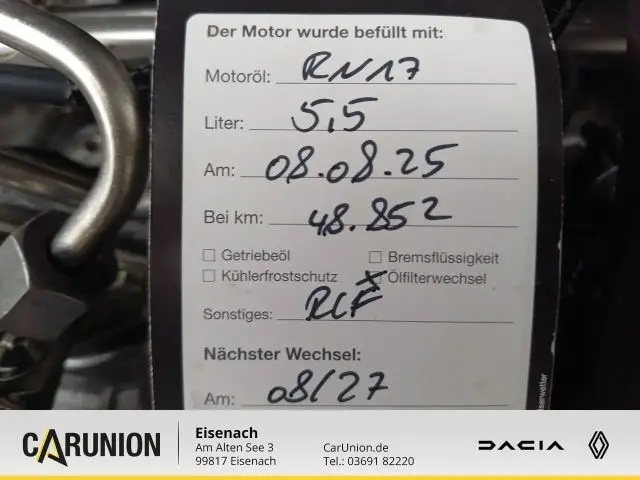 Der Motor wurde befüllt mit:
Motoröl: RN17
Liter: 5,5
Am: 08.08.25
Bei km: 48.852
Getriebeöl Bremsflüssigkeit
Kühlerfrostschutz Ölfilterwechsel
Sonstiges: RLF
Nächster Wechsel:
Am: 08/27
CARUNION
Eisenach
Am Alten See 3
99817 Eisenach
CarUnion.de
Tel.: 03691 82220
DACIA